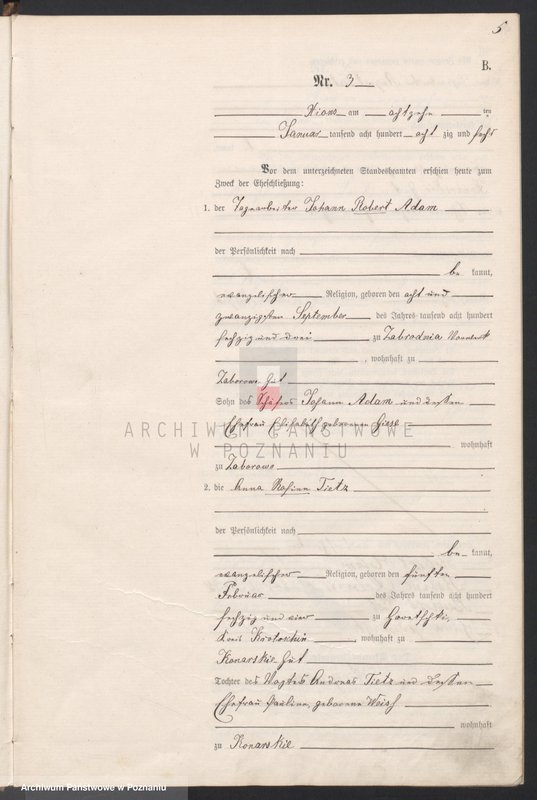 5
B.
Nr. 3
Xions am achtzehn ten
Januar tausend acht hundert acht zig und sechs
Vor dem unterzeichneten Standesbeamten erschien heute zum
Zweck der Eheschließung:
1. der Tagearbeiter Johann Robert Adam
der Persönlichkeit nach
be kannt,
evangelischer Religion, geboren den acht und
zwanzigsten September des Jahres tausend acht hundert
sechzig und drei zu Zabrodnia Vorwerk
, wohnhaft zu
Zaborowo Gut
Sohn des Schäfers Johann Adam und dessen
Ehefrau Elisabeth geborenen Giese
wohnhaft
zu Zaborowo
2. die Anna Rosina Tietz
der Persönlichkeit nach
be kannt,
evangelischer Religion, geboren den fünften
Februar des Jahres tausend acht hundert
sechzig und vier zu
Kreis Krotoschin, wohnhaft zu
Konarskie Gut
Tochter des Vogtes Andreas Tietz und dessen
Ehefrau Pauline, geborene Weiss
wohnhaft
zu Konarskie
ARCHIWUM PAŃSTWOWE
W POZNANIU
Archiwum Państwowe w Poznaniu